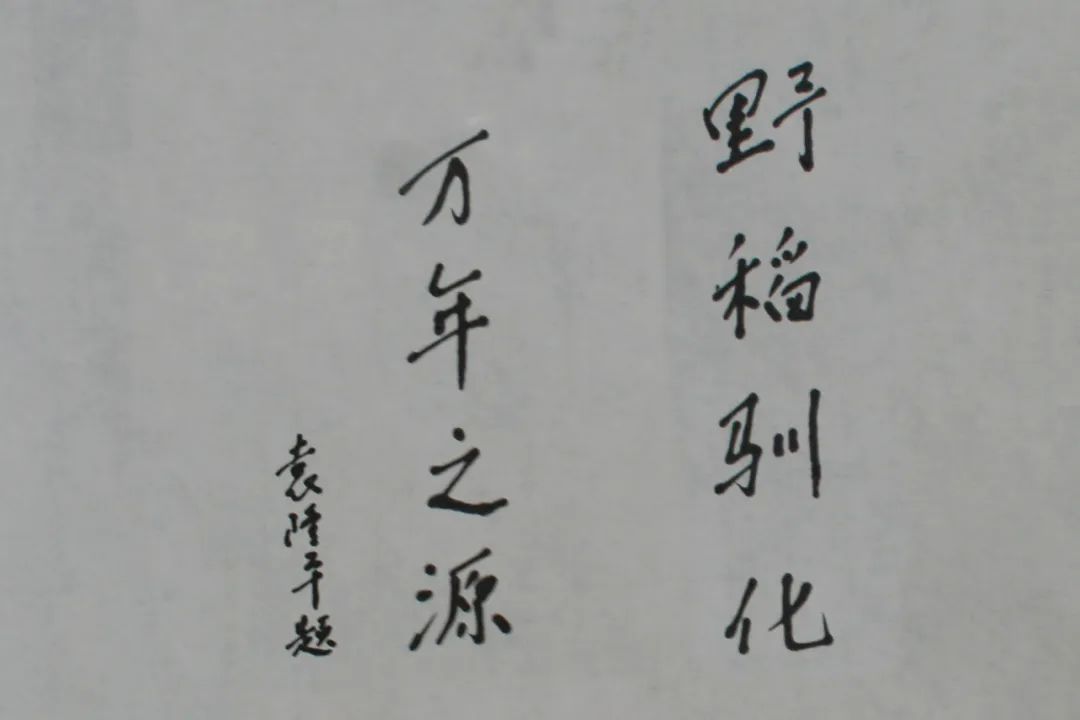 野稻驯化
万年之源
袁隆平题